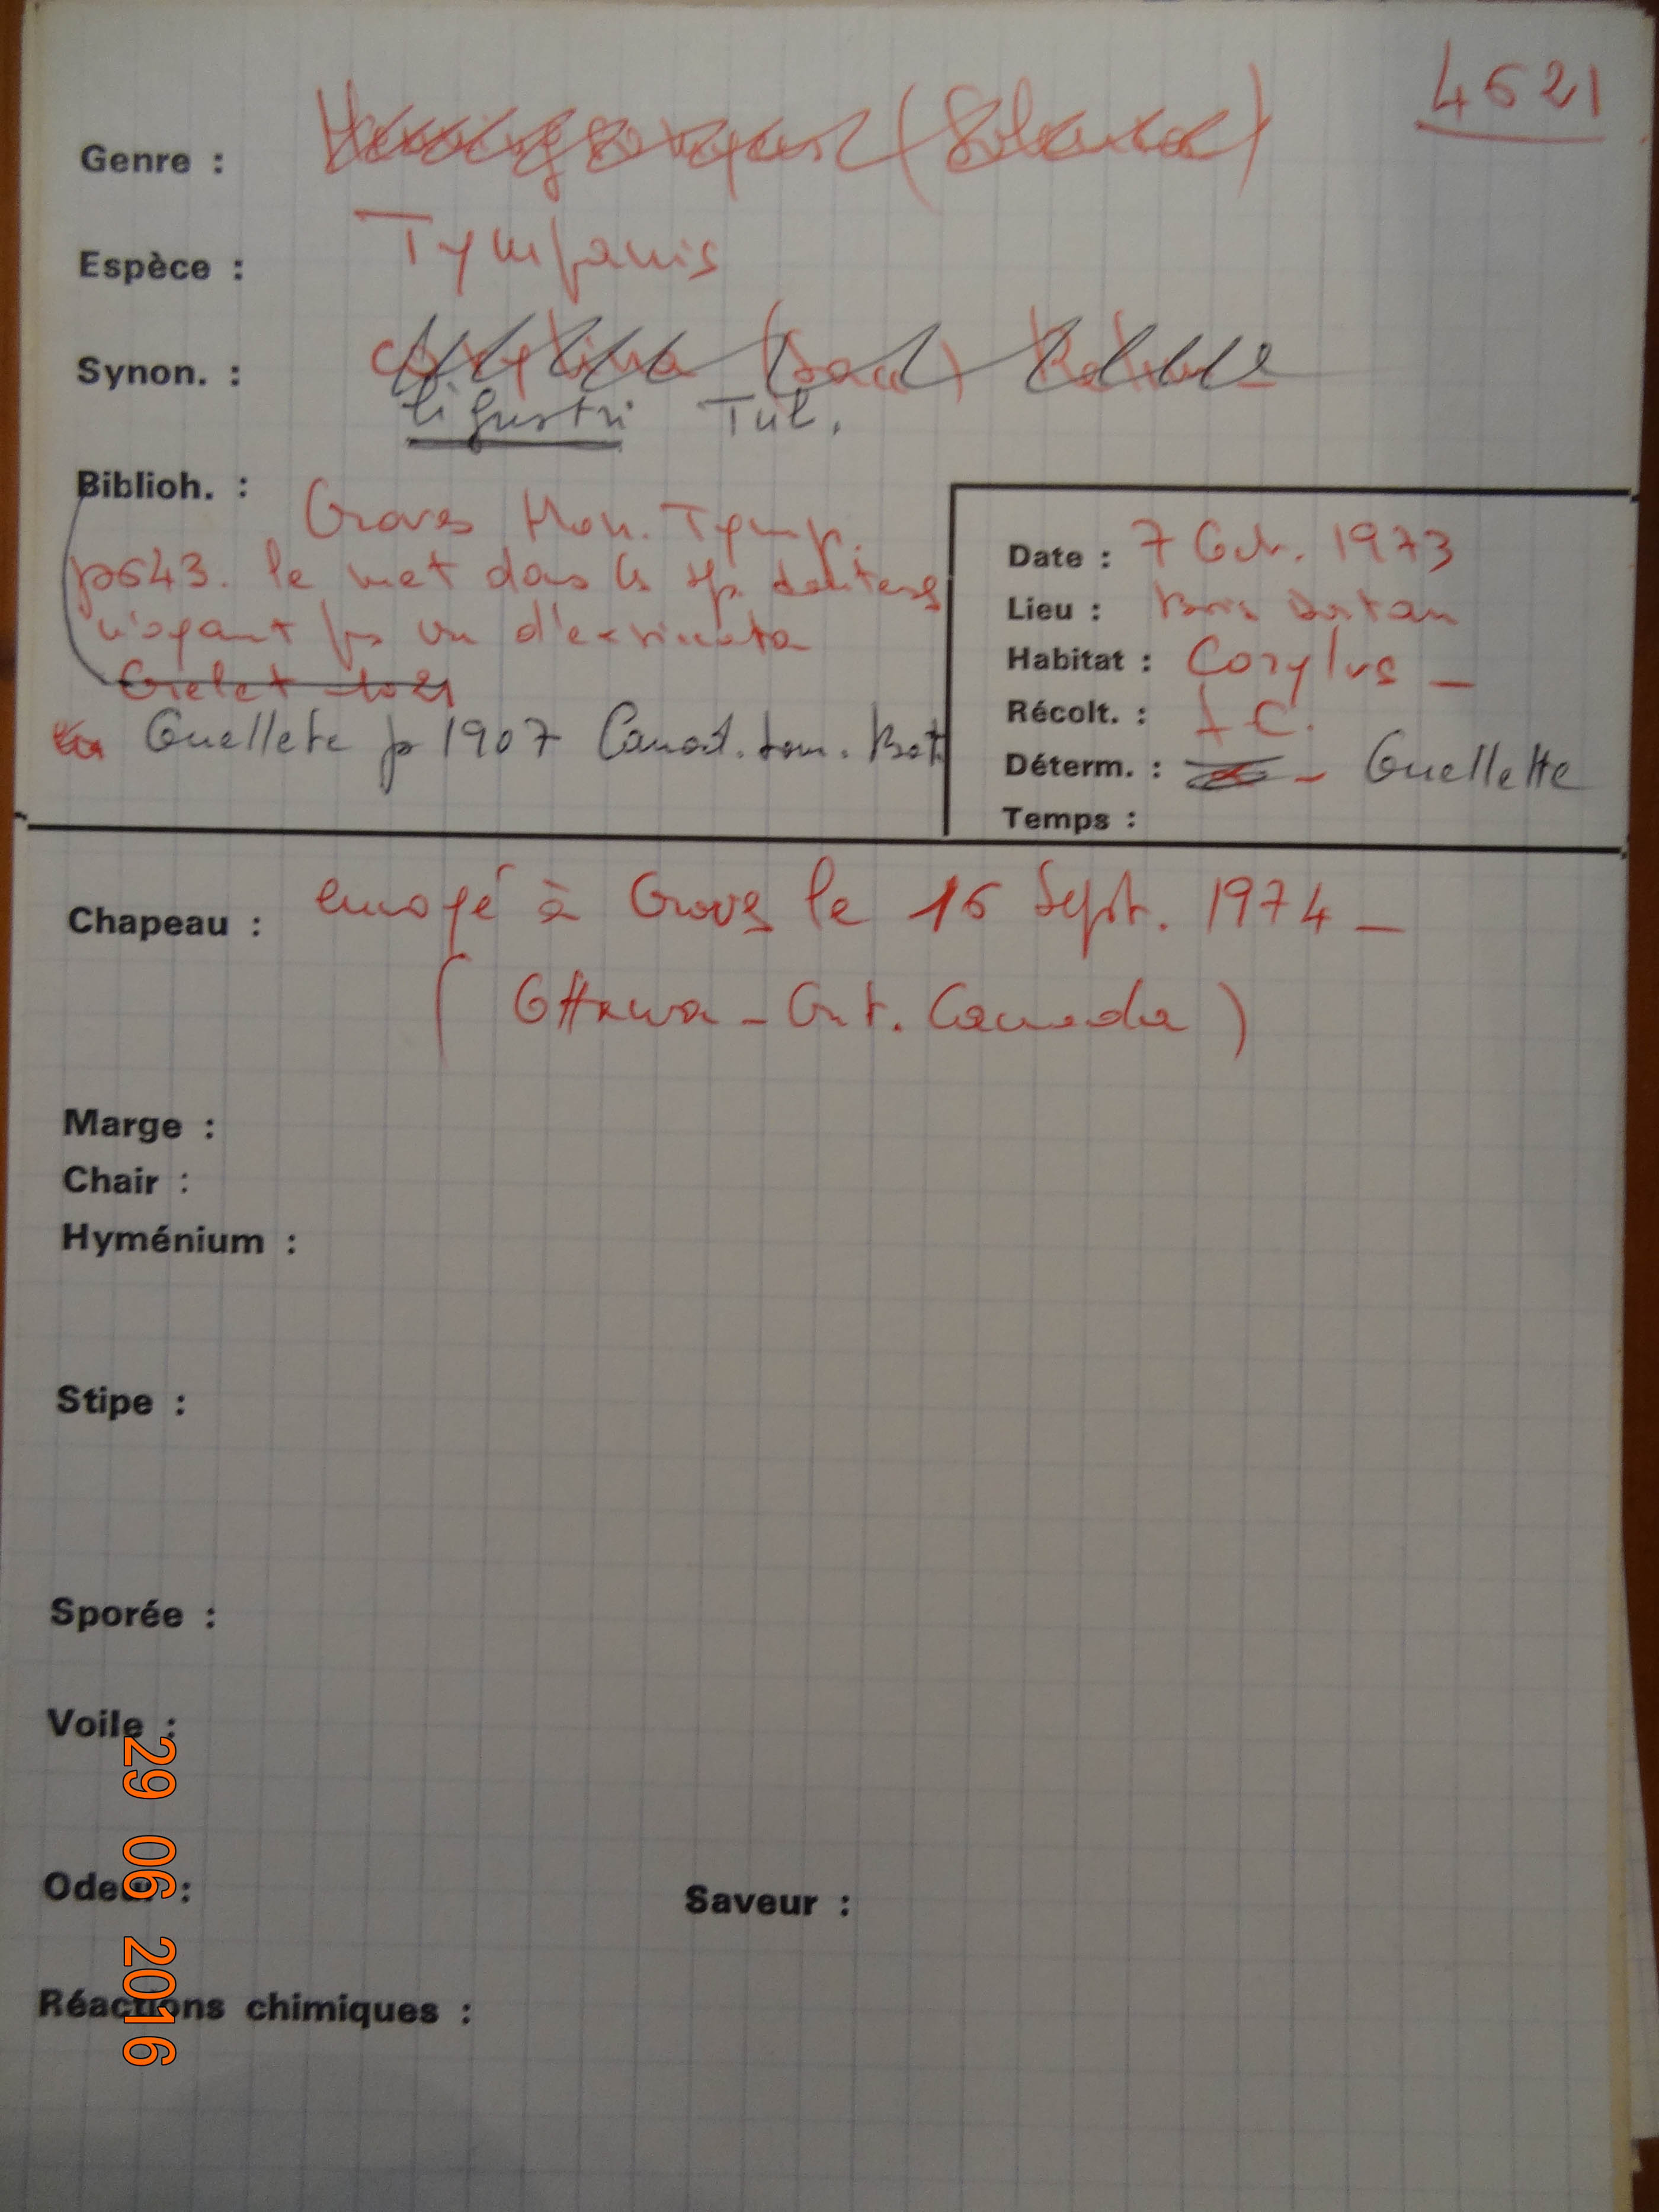 4621
Genre :
Espèce : Tympanis
Synon. :
ligustri Tul.
Biblioh. : Groves Mon. Tymp.
p643. le met dans les sp. douteuses
n'ayant pas vu d'exsiccata
Grelet
Ouellette p 1907 Canad. Jour. Bot.
Date : 7 Oct. 1973
Lieu :
Habitat : Corylus _
Récolt. : A C.
Déterm. : Ouellette
Temps :
Chapeau : envoyé à Groves le 16 Sept. 1974 _
( Ottawa - Ont. Canada )
Marge :
Chair :
Hyménium :
Stipe :
Sporée :
Voile :
Odeur :
Saveur :
Réactions chimiques :
29 06 2016